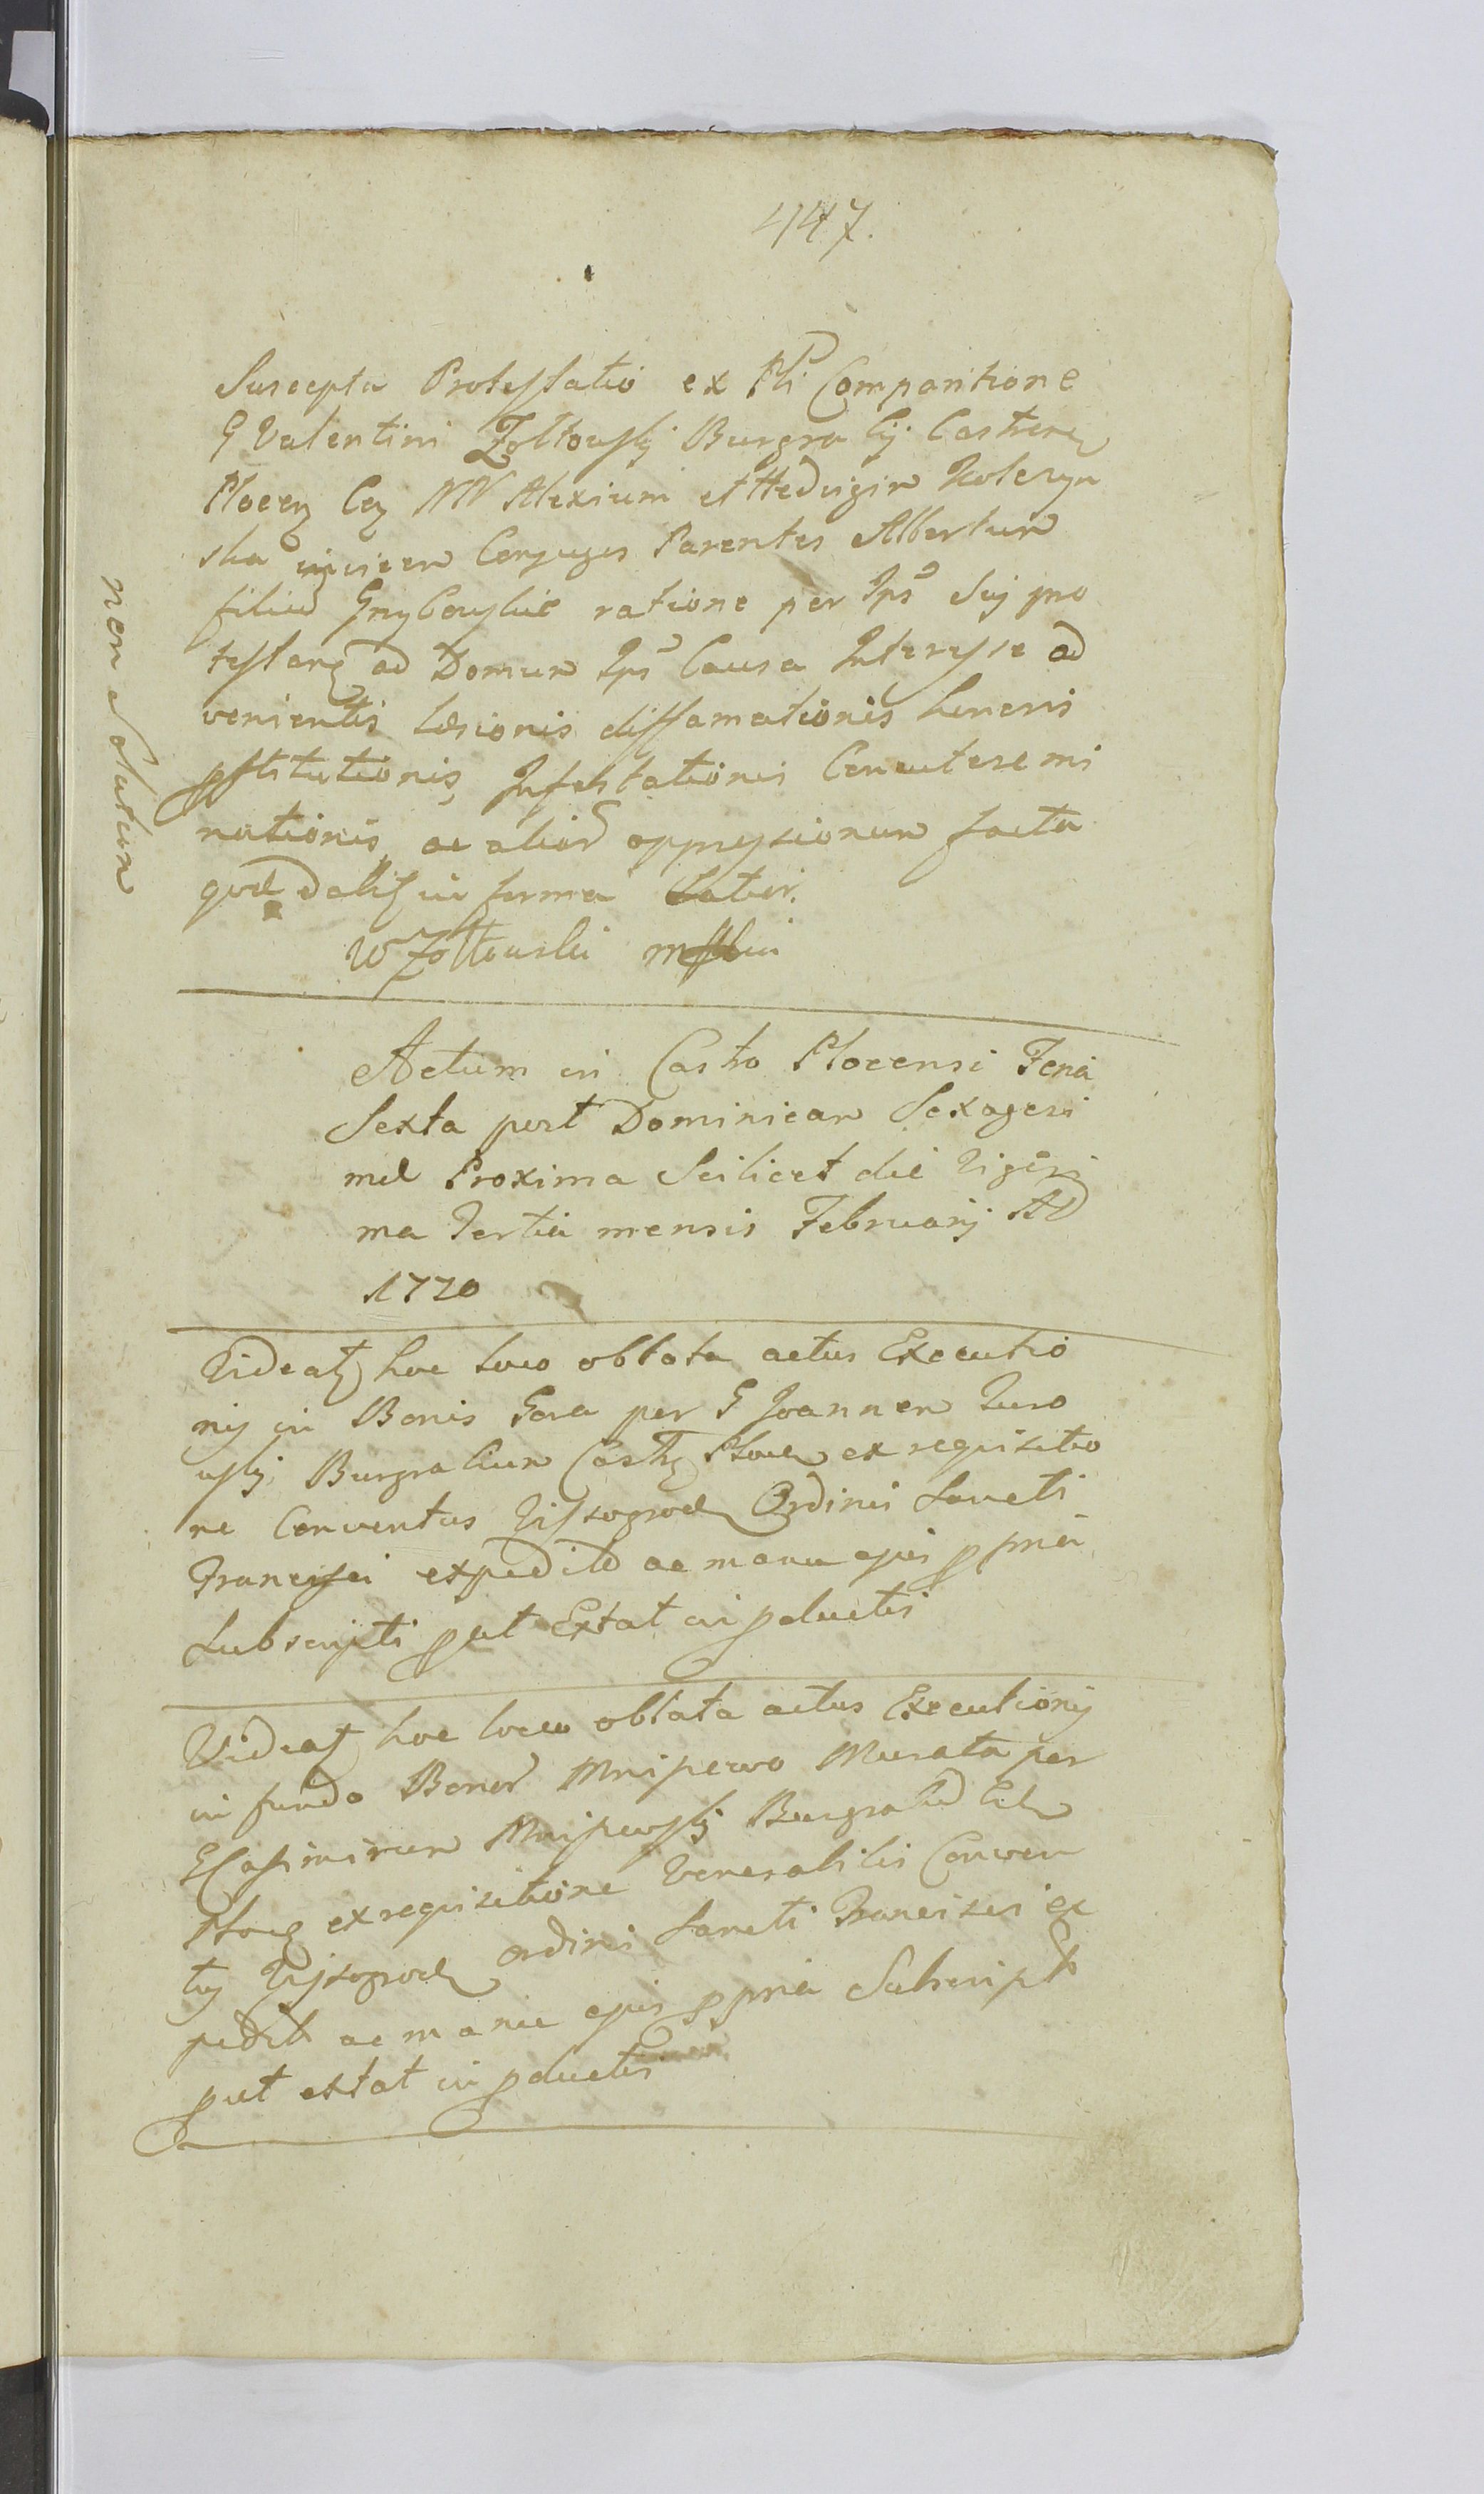 447.
Suscepta Protestatio ex Pli Comparitione
G Valentini Zołtowskj Burgra bij Castren
Plocen Ctra NN Alexium et Hedvigim
ska invicem Conjuges Parentes Albertum
filium ratione per Ips Suj pro
testans ad Domum Ips Causa Interesse ad
venientis læsionis diffamationis honoris
pstitutionis Infestationis
nationis ac alior oppressionum facta
quæ dabit in forma Latiori.
W Zołtowski mpp
non solutum
Actum in Castro Plocensi Feria
Sexta post Dominicam Sexagesi
mæ Proxima Scilicet die Vigesi
ma Tertia mensis Februarij AD
1720
Videat hoc loco oblata actus Executio
nis in Bonis Gora per G Joannem Turo
wskj Burgrabium Castr Plocen ex requisitio
ne Conventus Vissogroden Ordinis Sancti
Francisci expedito ac manu ejus ppria
Subscripti put Extat in pductis
Videat hoc loco oblata actus Executionis
in fundo Bonor Murata per
G Casimirum Burgrabium
Plocen ex requisitione Venerabilis Conven
tus Vissogroden Ordinis Sancti Francisci ex
pedit ac manu ejus ppria Subscript
put extat in pductis